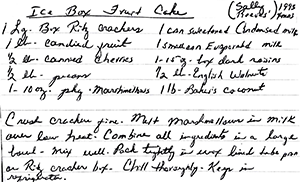 Ice Box Fruit Cake (Sally Moore's) 1993 Xmas
1 Lg. Box Ritz crackers 1 can sweetened Condensed milk
1 lb. candied fruit 1 small can Evaporated milk
1/2 lb. canned cherries 1-15 oz. box dark raisins
1/2 lb. pecans 1/2 lb. English Walnuts
1-10 oz. pkg. Marshmallows 1 lb. Baker's coconut
Crush cracker fine. Melt marshmallows in milk
over low heat. Combine all ingredients in a large
bowl. Mix well. Pack tightly in wax lined tube pan
or Ritz cracker box. Chill thoroughly. Keep in
refrigerator.